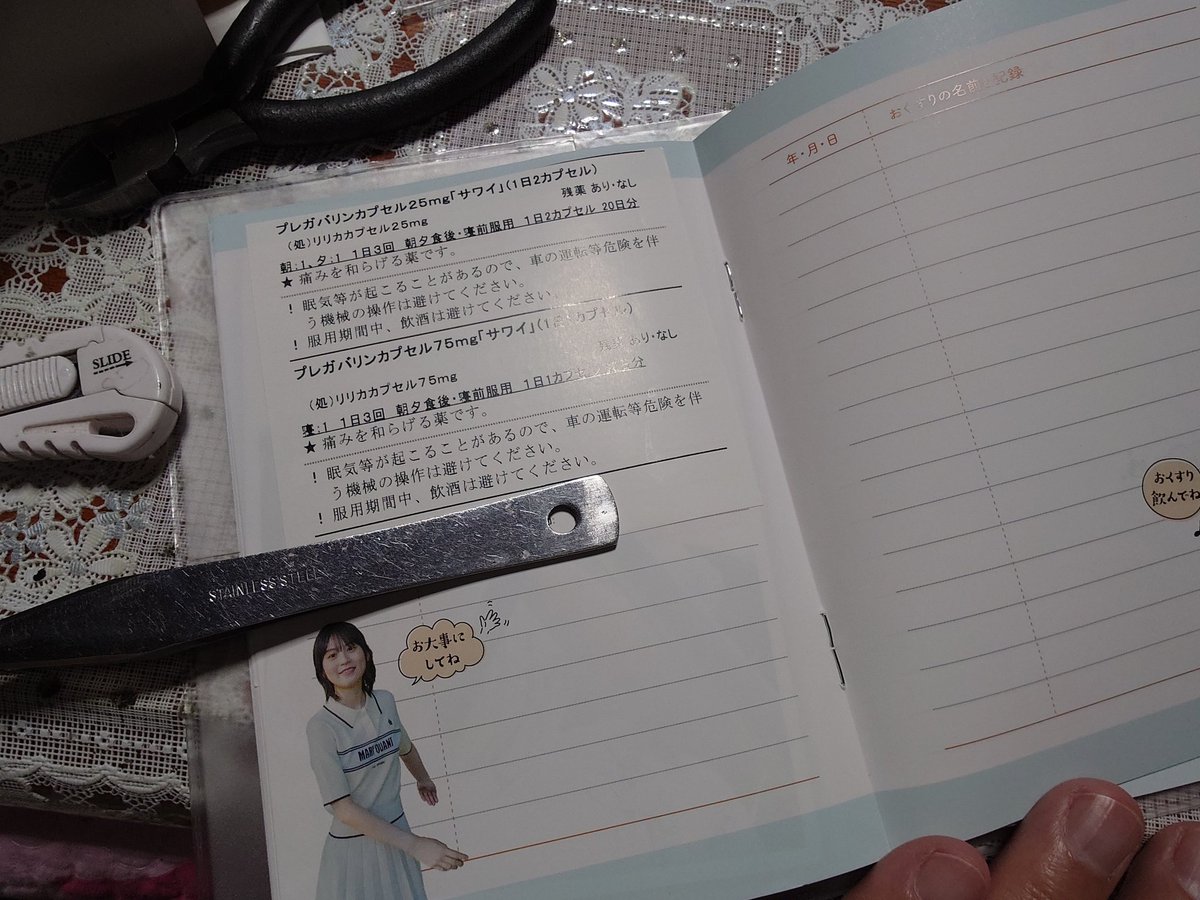 プレガバリンカプセル25mg「サワイ」(1日2カプセル)
残薬 あり・なし
(処)リリカカプセル25mg
朝:1、夕:1 1日3回 朝夕食後・寝前服用 1日2カプセル 20日分
★痛みを和らげる薬です。
! 眠気等が起こることがあるので、車の運転等危険を伴
う機械の操作は避けてください。
! 服用期間中、飲酒は避けてください
プレガバリンカプセル75mg「サワイ」(1日 カプセル)
残薬 あり・なし
(処)リリカカプセル75mg
寝:1 1日3回 朝夕食後・寝前服用 1日1カプセル
★痛みを和らげる薬です。
! 眠気等が起こることがあるので、車の運転等危険を伴
う機械の操作は避けてください。
! 服用期間中、飲酒は避けてください。
SLIDE
STAINLESS STEEL
お大事に
してね
MARY QUANT
年・月・日
おくすりの名前と記録
おくすり
飲んでね